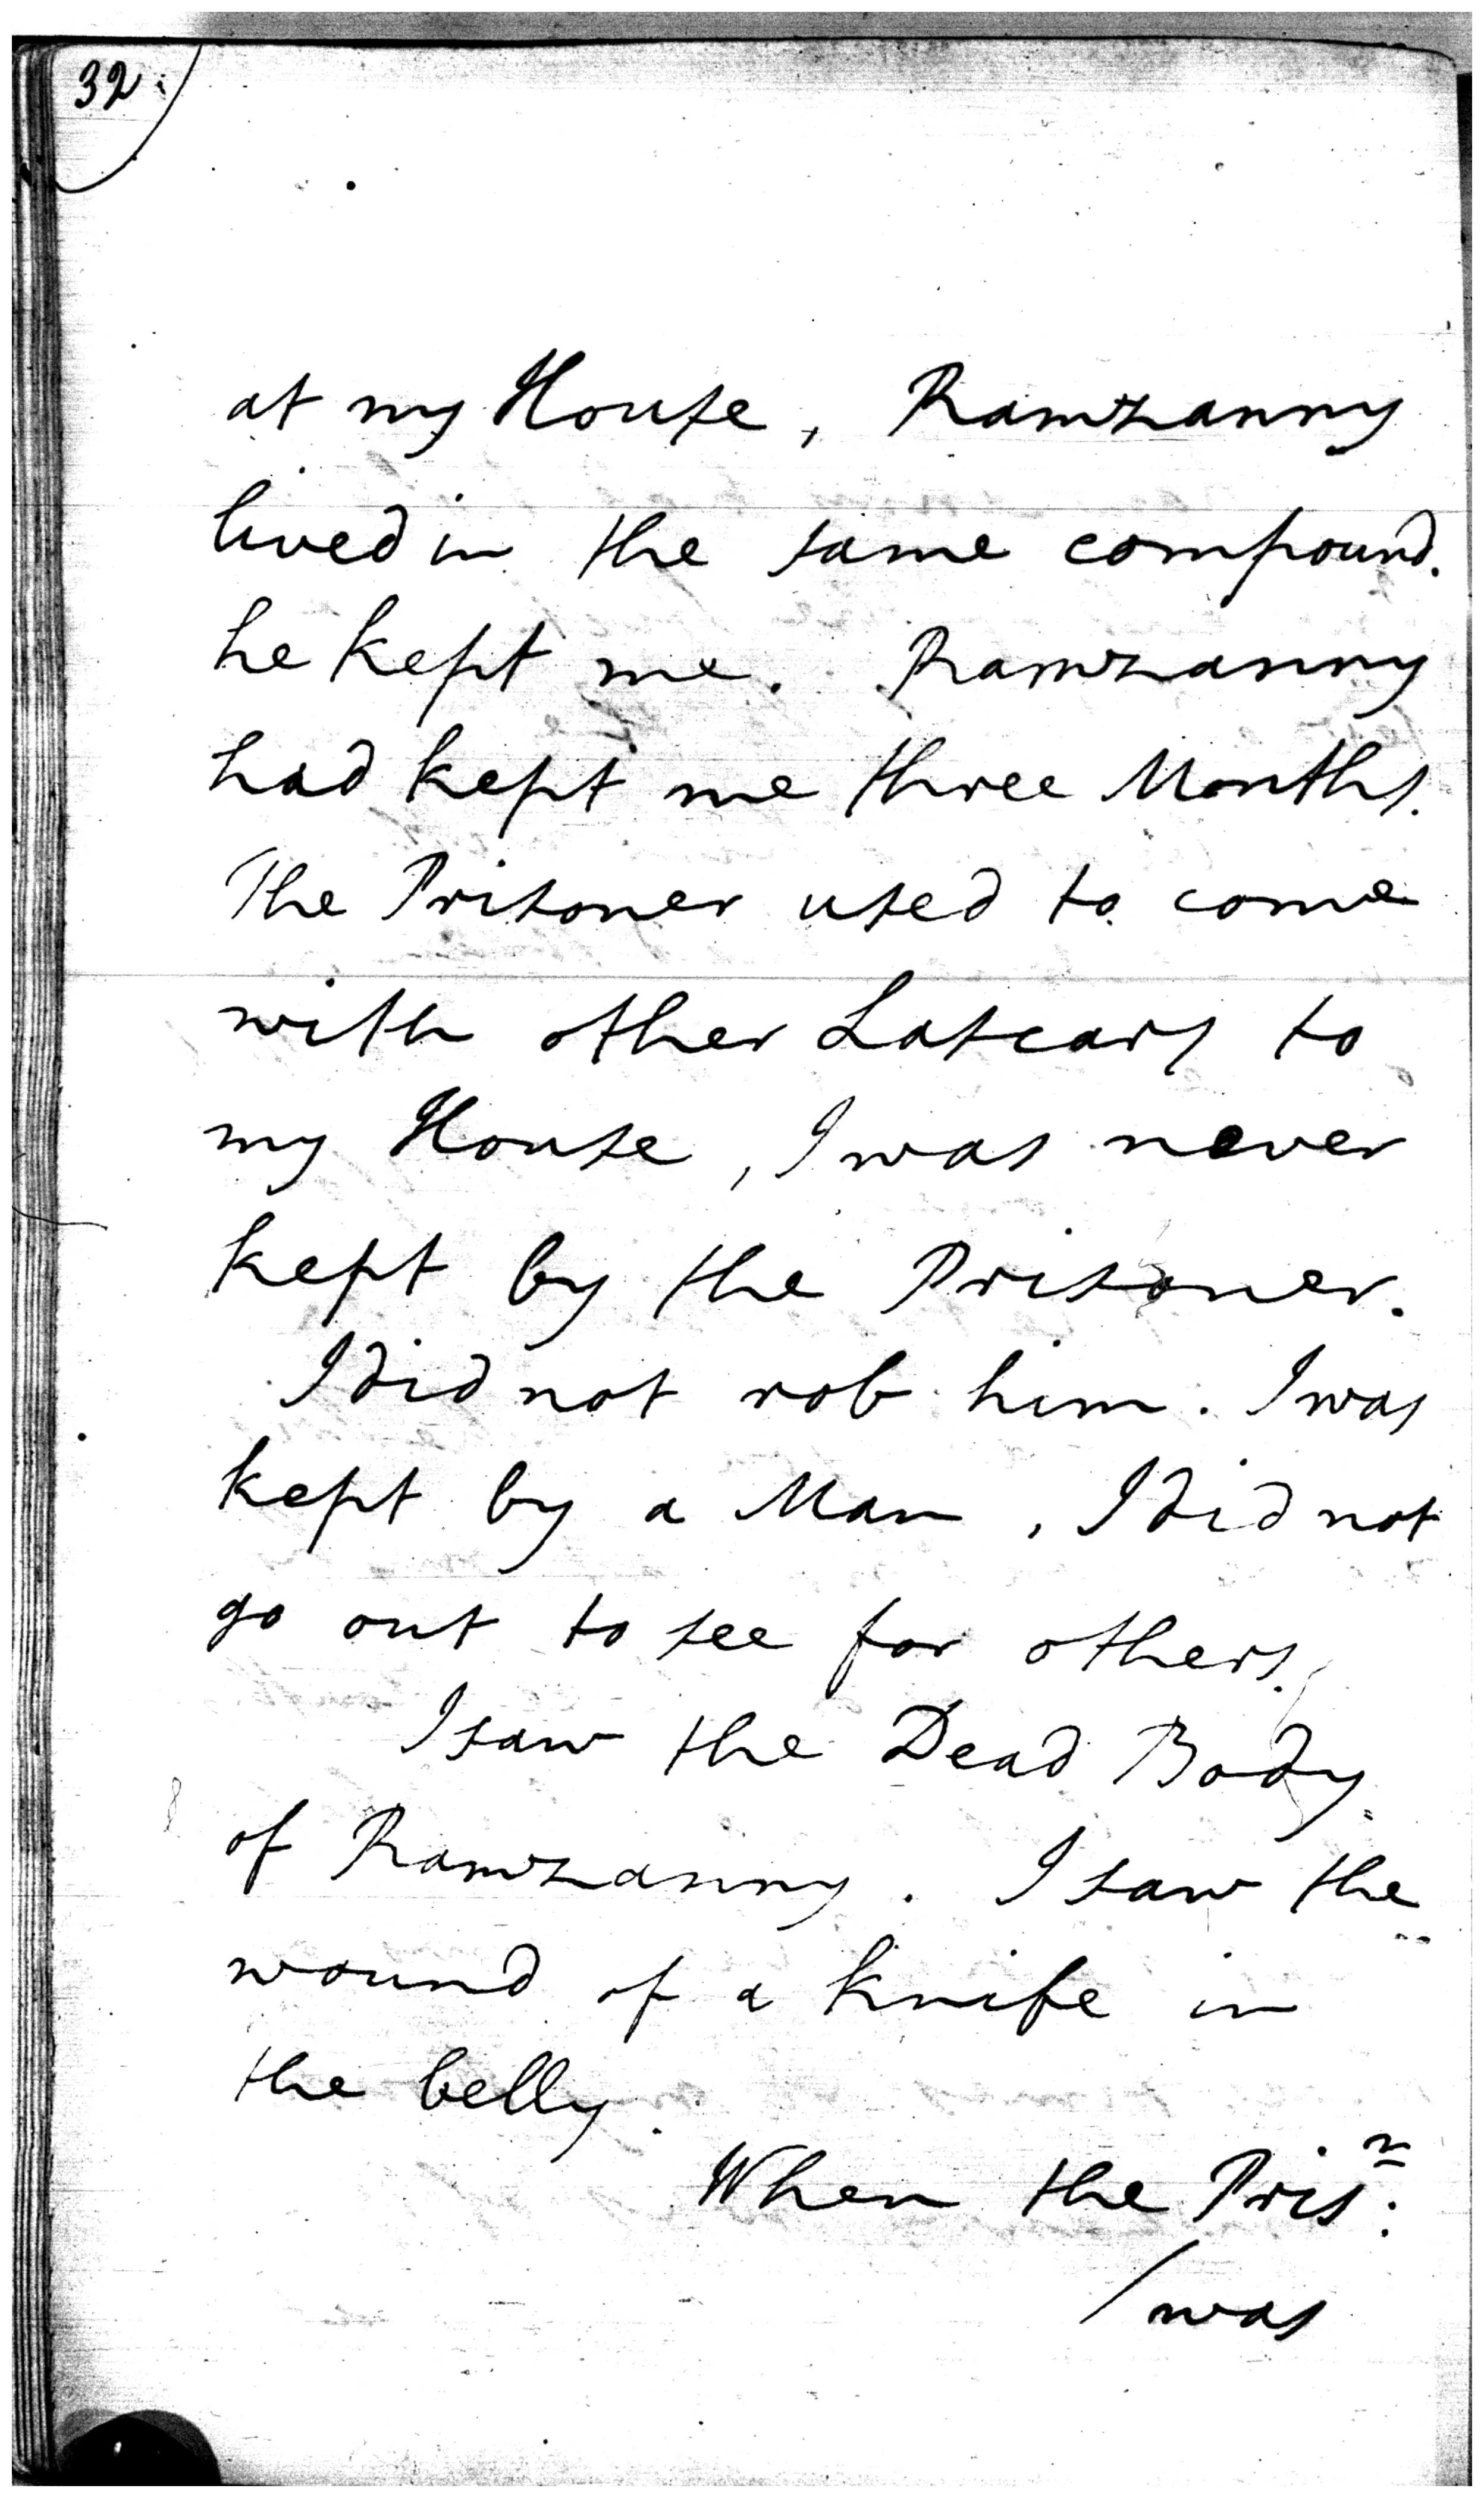 32
at my House, Ramzanny
lived in the same compound.
he kept me. Ramzanny
had kept me three Months.
The Prisoner used to come
with other Lascars to
my House, I was never
kept by the Prisoner.
I did not rob him. I was
kept by a Man, I did not
go out to see for others.
I saw the Dead Body
of Ramzanny. I saw the
wound of a knife in
the belly.
When the Pris.n
/was